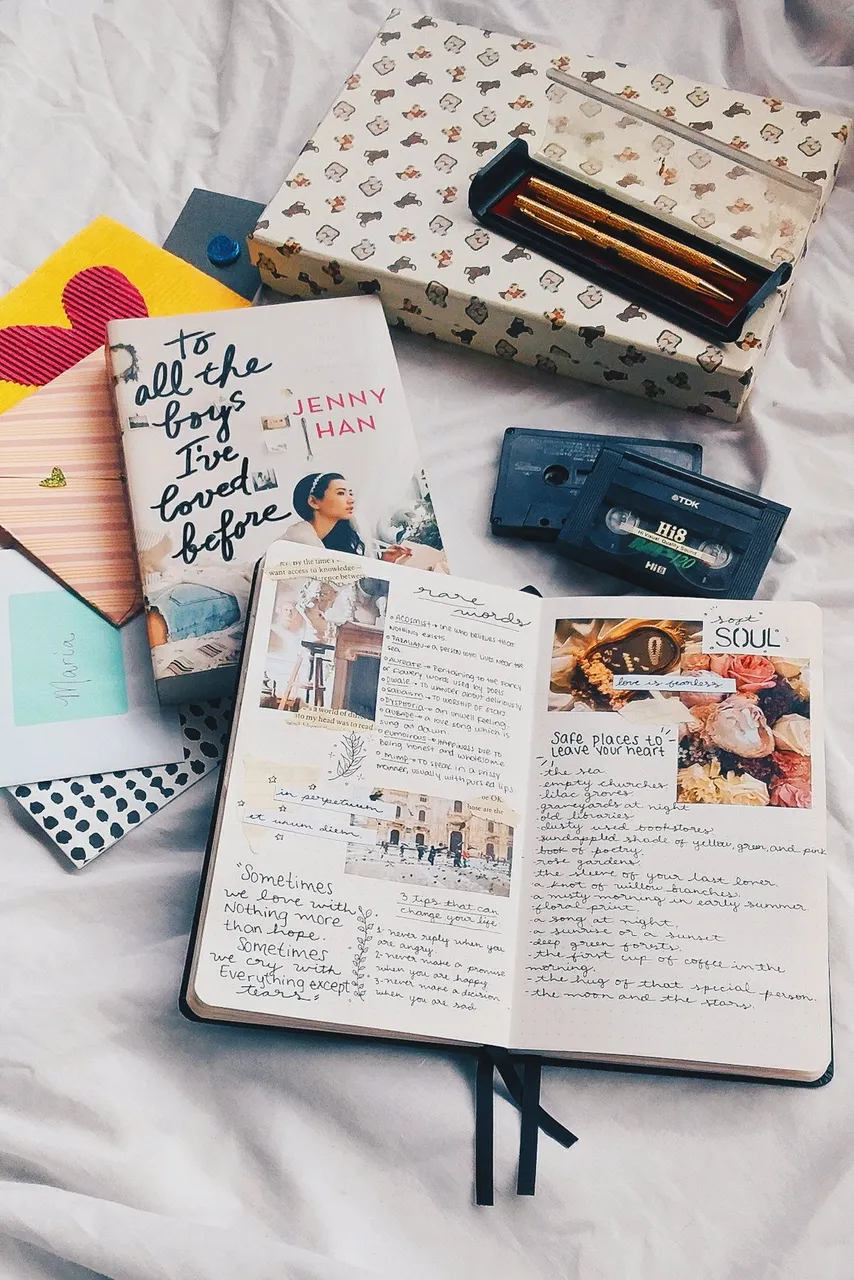 to
all the
boys
I've
loved
before
JENNY
HAN
TDK
Hi8
Hi8
Maria
want access to knowledge—
a world of
to my head was to read
rare
words
ACOSMIST → one who believes that
nothing exists.
PARALIAN → A person who lives near the
sea.
AUREATE → Pertaining to the fancy
or flowery words used by poets
DWALE → To wander about deliriously
SABAISM → TO worship of stars
DYSPHORIA → an unwell feeling.
AUBADE → a love song which is
sung at dawn.
EUMOIROUS → HAPPINESS due to
being honest and wholesome.
MIMP → To speak in a prissy
manner, usually with pursed lips
in perpetuum
et unum diem
"Sometimes
we love with
Nothing more
than hope.
Sometimes
we cry with
Everything except
tears."
3 tips that can
change your life.
1-never reply when you
are angry
2-never make a promise
when you are happy
3-never make a decision
when you are sad
soft
SOUL
love is fearless
Safe places to
leave your heart
-the sea
-empty churches
-lilac groves
-graveyards at night
-old libraries
-dusty used bookstores
-sundappled shade of yellow, green, and pink
-book of poetry
-rose gardens
-the sleeve of your last lover.
-a knot of willow branches.
-a misty morning in early summer
-floral print
-a song at night,
-a sunrise or a sunset
-deep green forests.
-the first cup of coffee in the
morning.
-the hug of that special person.
-the moon and the stars.